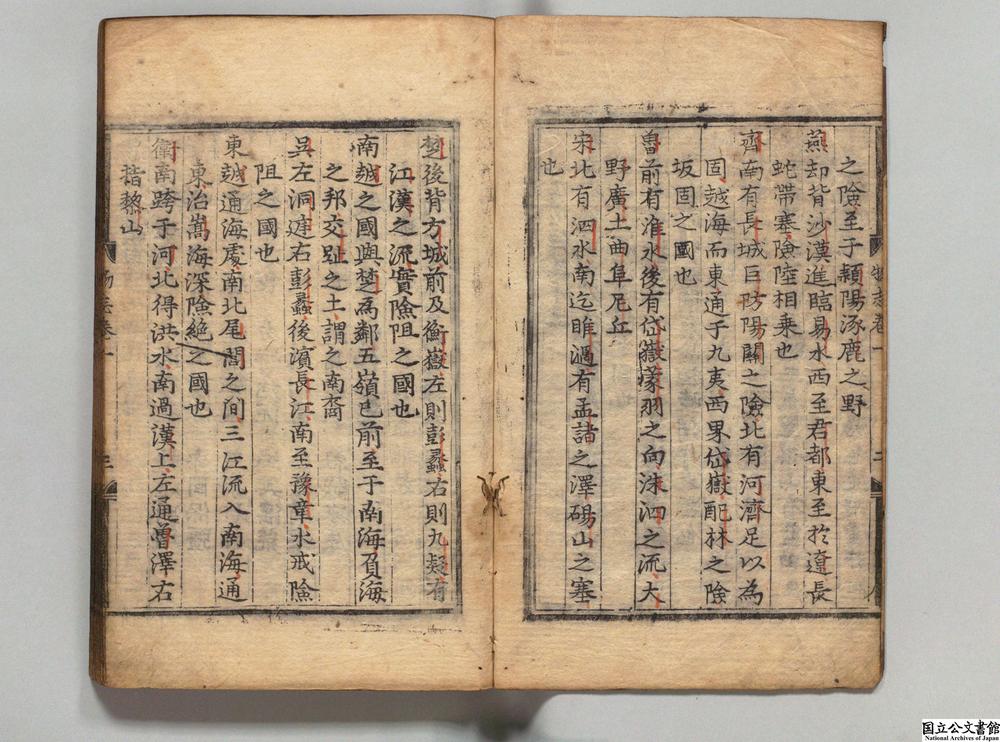 之險至于頴陽涿鹿之野
燕却背沙漠進臨易水西至君都東至於遼長
蛇帶塞險陸相乗也
齊南有長城巨防陽關之險北有河濟足以為
固越海而東通于九夷西界岱嶽配林之險
坂固之國也
魯前有淮水後有岱嶽蒙羽之向洙泗之流大
野廣土曲阜尼丘
宋北有泗水南迄睢濄有孟諸之澤碭山之塞
也
物志卷一
楚後背方城前及衡嶽左則彭蠡右則九疑有
江漢之流實險阻之國也
南越之國與楚為鄰五嶺已前至于南海負海
之邦交趾之土謂之南裔
吳左洞庭右彭蠡後濱長江南至豫章水戒險
阻之國也
東越通海處南北尾閭之间三江流入南海通
東治嵩海深險絶之國也
衛南跨于河北得洪水南過漢上左通曽澤右
指黎山
物志卷一
国立公文書館
National Archives of Japan